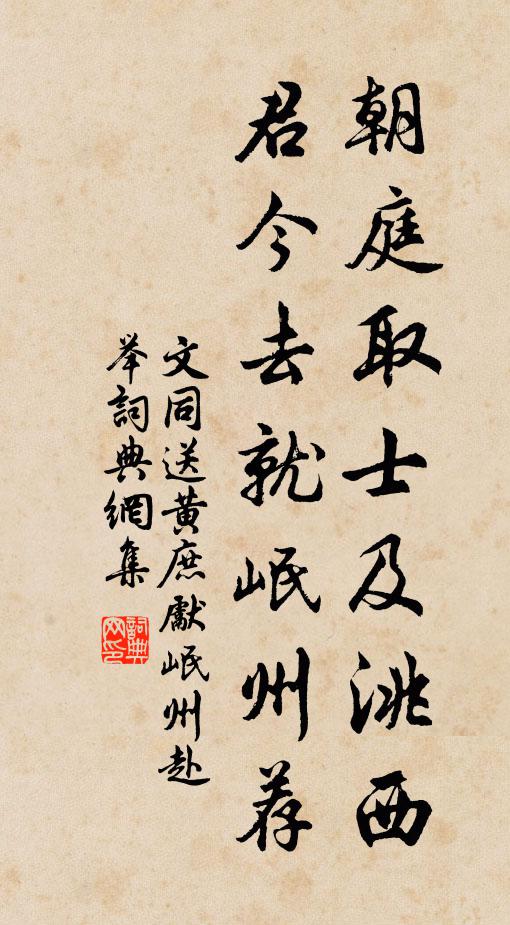 朝庭取士及洮西
君今去就岷州荐
文同送黄庶獻岷州赴
举詞典網集
詞典网印